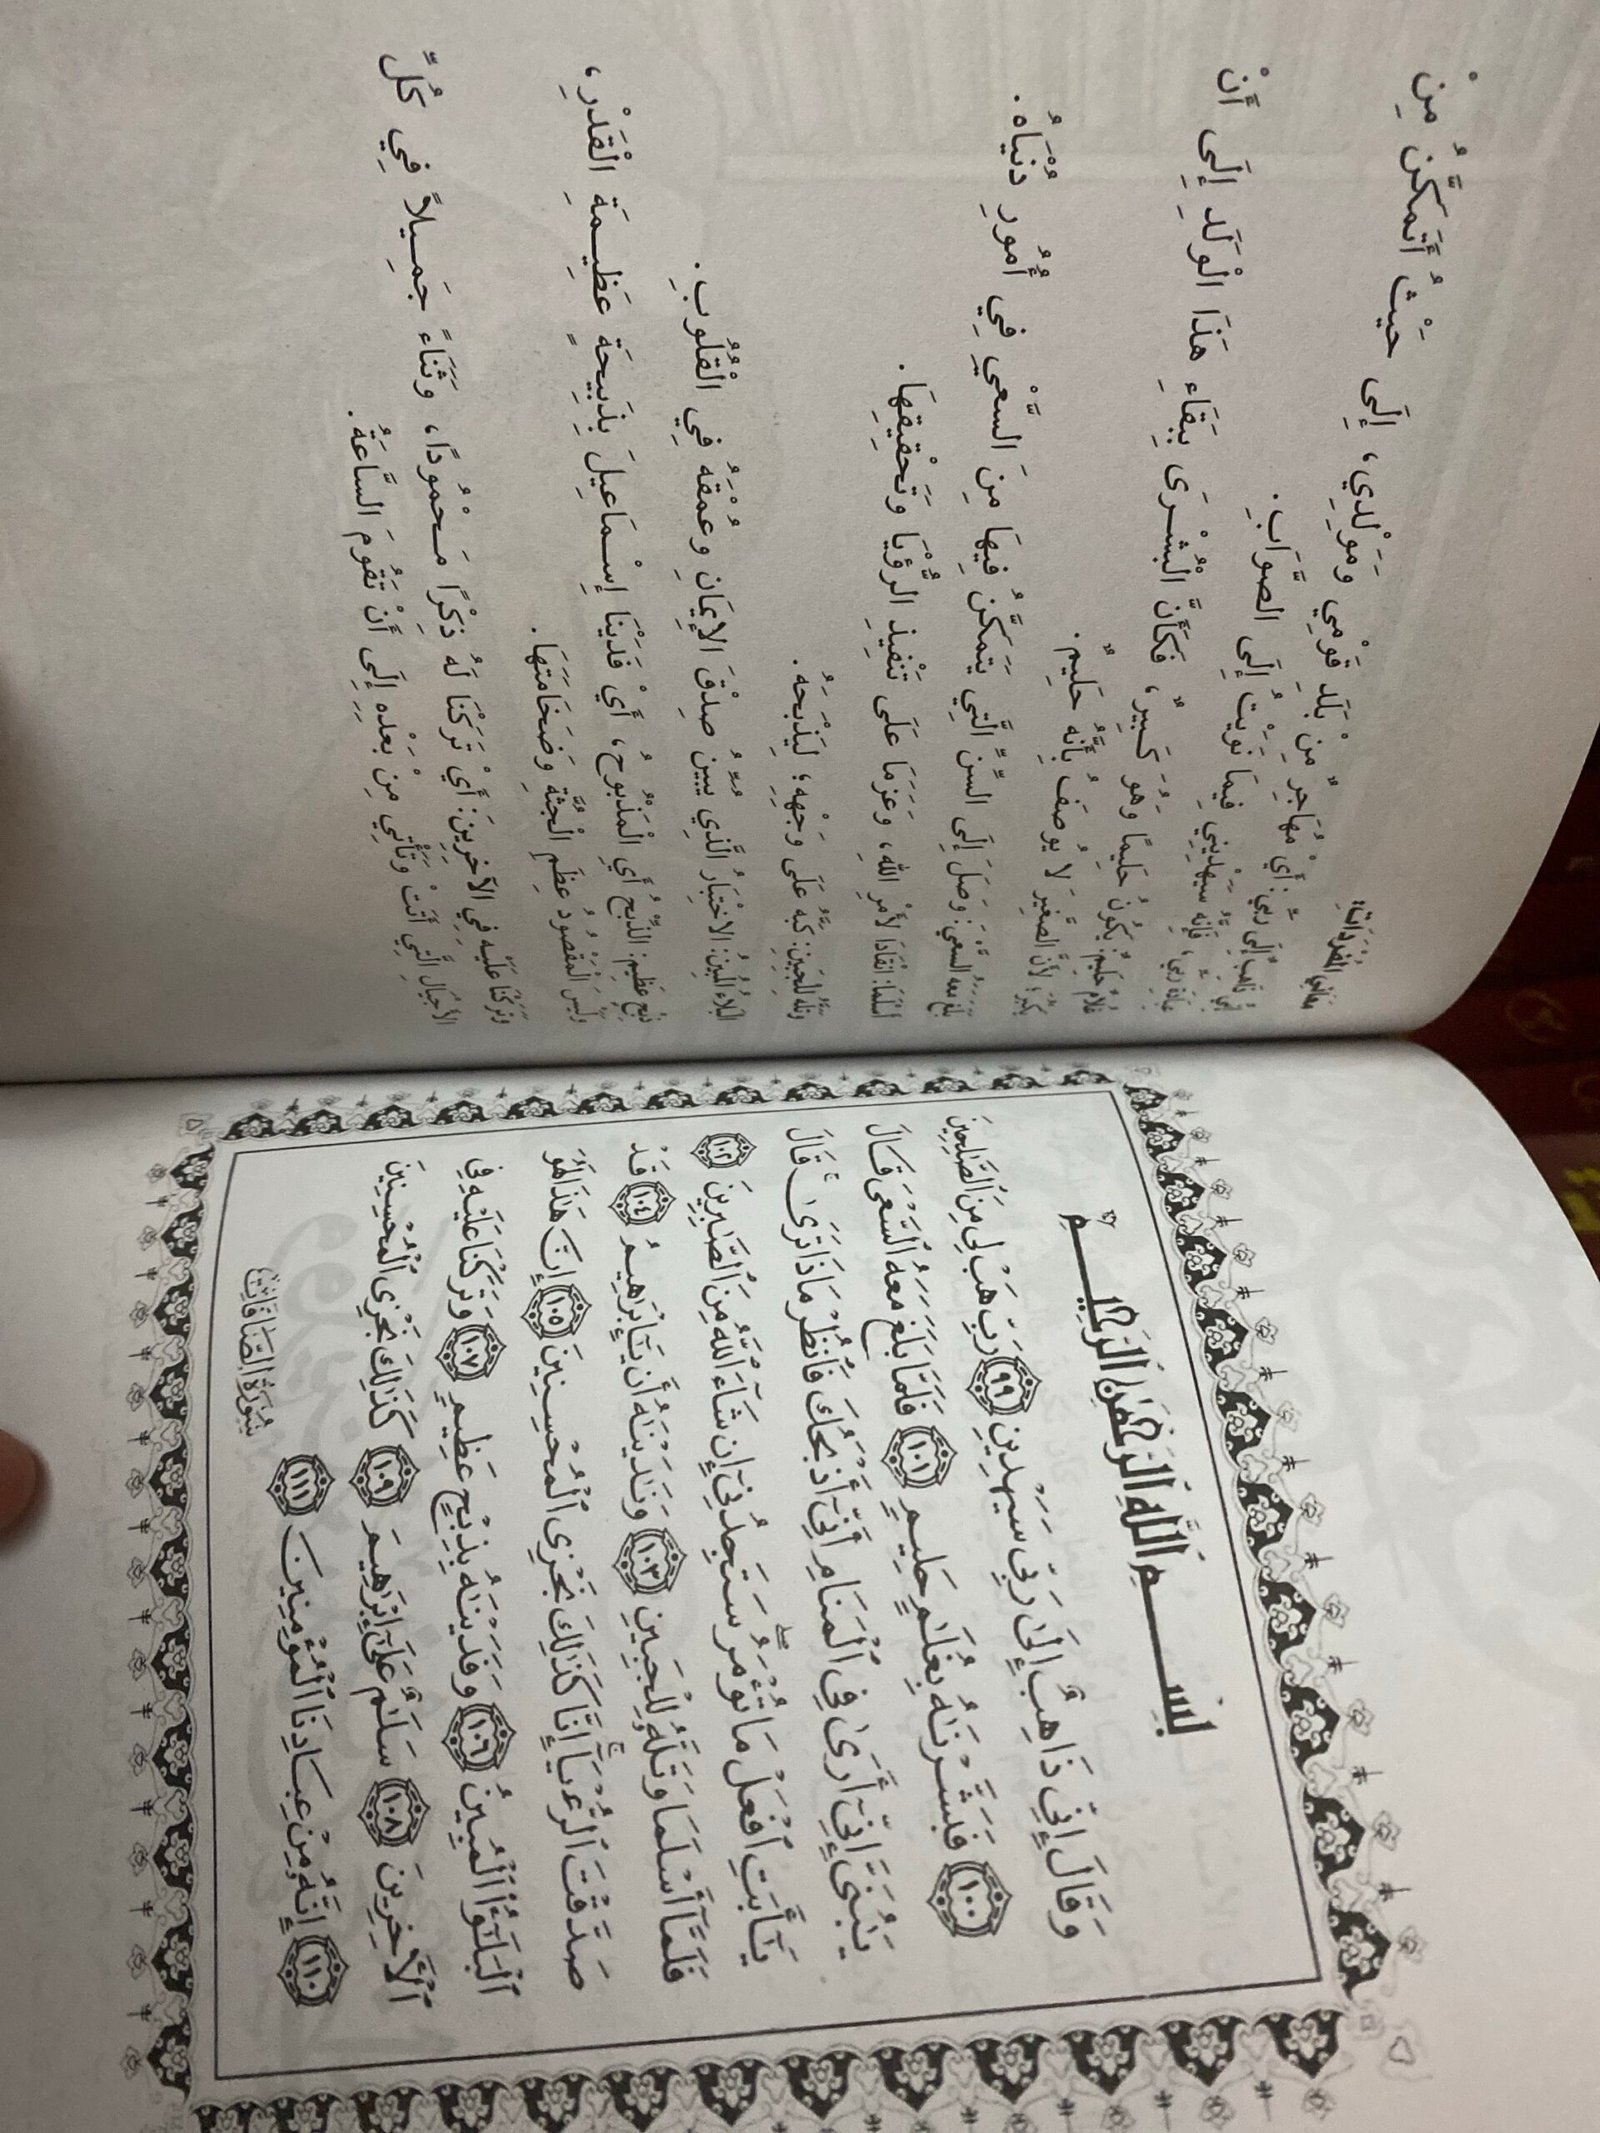 بِسْمِ ٱللَّهِ ٱلرَّحْمَٰنِ ٱلرَّحِيمِ
وَقَالَ إِنِّي ذَاهِبٌ إِلَىٰ رَبِّي سَيَهْدِينِ ٩٩ رَبِّ هَبْ لِي مِنَ ٱلصَّٰلِحِينَ
١٠٠ فَبَشَّرْنَٰهُ بِغُلَٰمٍ حَلِيمٍ ١٠١ فَلَمَّا بَلَغَ مَعَهُ ٱلسَّعْيَ قَالَ
يَٰبُنَيَّ إِنِّيٓ أَرَىٰ فِي ٱلْمَنَامِ أَنِّيٓ أَذْبَحُكَ فَٱنظُرْ مَاذَا تَرَىٰ ۚ قَالَ
يَٰٓأَبَتِ ٱفْعَلْ مَا تُؤْمَرُ ۖ سَتَجِدُنِيٓ إِن شَآءَ ٱللَّهُ مِنَ ٱلصَّٰبِرِينَ ١٠٢
فَلَمَّآ أَسْلَمَا وَتَلَّهُۥ لِلْجَبِينِ ١٠٣ وَنَٰدَيْنَٰهُ أَن يَٰٓإِبْرَٰهِيمُ ١٠٤ قَدْ
صَدَّقْتَ ٱلرُّءْيَآ ۚ إِنَّا كَذَٰلِكَ نَجْزِي ٱلْمُحْسِنِينَ ١٠٥ إِنَّ هَٰذَا لَهُوَ
ٱلْبَلَٰٓؤُا۟ ٱلْمُبِينُ ١٠٦ وَفَدَيْنَٰهُ بِذِبْحٍ عَظِيمٍ ١٠٧ وَتَرَكْنَا عَلَيْهِ فِي
ٱلْأَخِرِينَ ١٠٨ سَلَٰمٌ عَلَىٰٓ إِبْرَٰهِيمَ ١٠٩ كَذَٰلِكَ نَجْزِي ٱلْمُحْسِنِينَ
١١٠ إِنَّهُۥ مِنْ عِبَادِنَا ٱلْمُؤْمِنِينَ ١١١
سُورَةُ الصَّافَّاتِ
مَعَانِي الْمُفْرَدَاتِ:
إِنِّي ذَاهِبٌ إِلَى رَبِّي: أَيْ مُهَاجِرٌ مِنْ بَلَدِ قَوْمِي وَمَوْلِدِي، إِلَى حَيْثُ أَتَمَكَّنُ مِنْ
عِبَادَةِ رَبِّي، فَإِنَّهُ سَيَهْدِينِي فِيمَا نَوَيْتُ إِلَى الصَّوَابِ.
غُلَامٌ حَلِيمٌ: يَكُونُ حَلِيمًا وَهُوَ كَبِيرٌ، فَكَأَنَّ الْبُشْرَى بِبَقَاءِ هَذَا الْوَلَدِ إِلَى أَنْ
يَكْبُرَ؛ لِأَنَّ الصَّغِيرَ لَا يُوصَفُ بِأَنَّهُ حَلِيمٌ.
بَلَغَ مَعَهُ السَّعْيَ: وَصَلَ إِلَى السِّنِّ الَّتِي يَتَمَكَّنُ فِيهَا مِنَ السَّعْيِ فِي أُمُورِ دُنْيَاهُ.
أَسْلَمَا: انْقَادَا لِأَمْرِ اللهِ، وَعَزَمَا عَلَى تَنْفِيذِ الرُّؤْيَا وَتَحْقِيقِهَا.
وَتَلَّهُ لِلْجَبِينِ: كَبَّهُ عَلَى وَجْهِهِ؛ لِيَذْبَحَهُ.
الْبَلَاءُ الْمُبِينُ: الِاخْتِبَارُ الَّذِي يُبَيِّنُ صِدْقَ الْإِيمَانِ وَعُمْقَهُ فِي الْقُلُوبِ.
بِذِبْحٍ عَظِيمٍ: الذِّبْحُ أَيِ الْمَذْبُوحُ، أَيْ فَدَيْنَا إِسْمَاعِيلَ بِذَبِيحَةٍ عَظِيمَةِ الْقَدْرِ،
وَلَيْسَ الْمَقْصُودُ عِظَمِ الْجُثَّةِ وَضَخَامَتَهَا.
وَتَرَكْنَا عَلَيْهِ فِي الْآخِرِينَ: أَيْ تَرَكْنَا لَهُ ذِكْرًا مَحْمُودًا، وَثَنَاءً جَمِيلًا فِي كُلِّ
الْأَجْيَالِ الَّتِي أَتَتْ وَتَأْتِي مِنْ بَعْدِهِ إِلَى أَنْ تَقُومَ السَّاعَةُ.